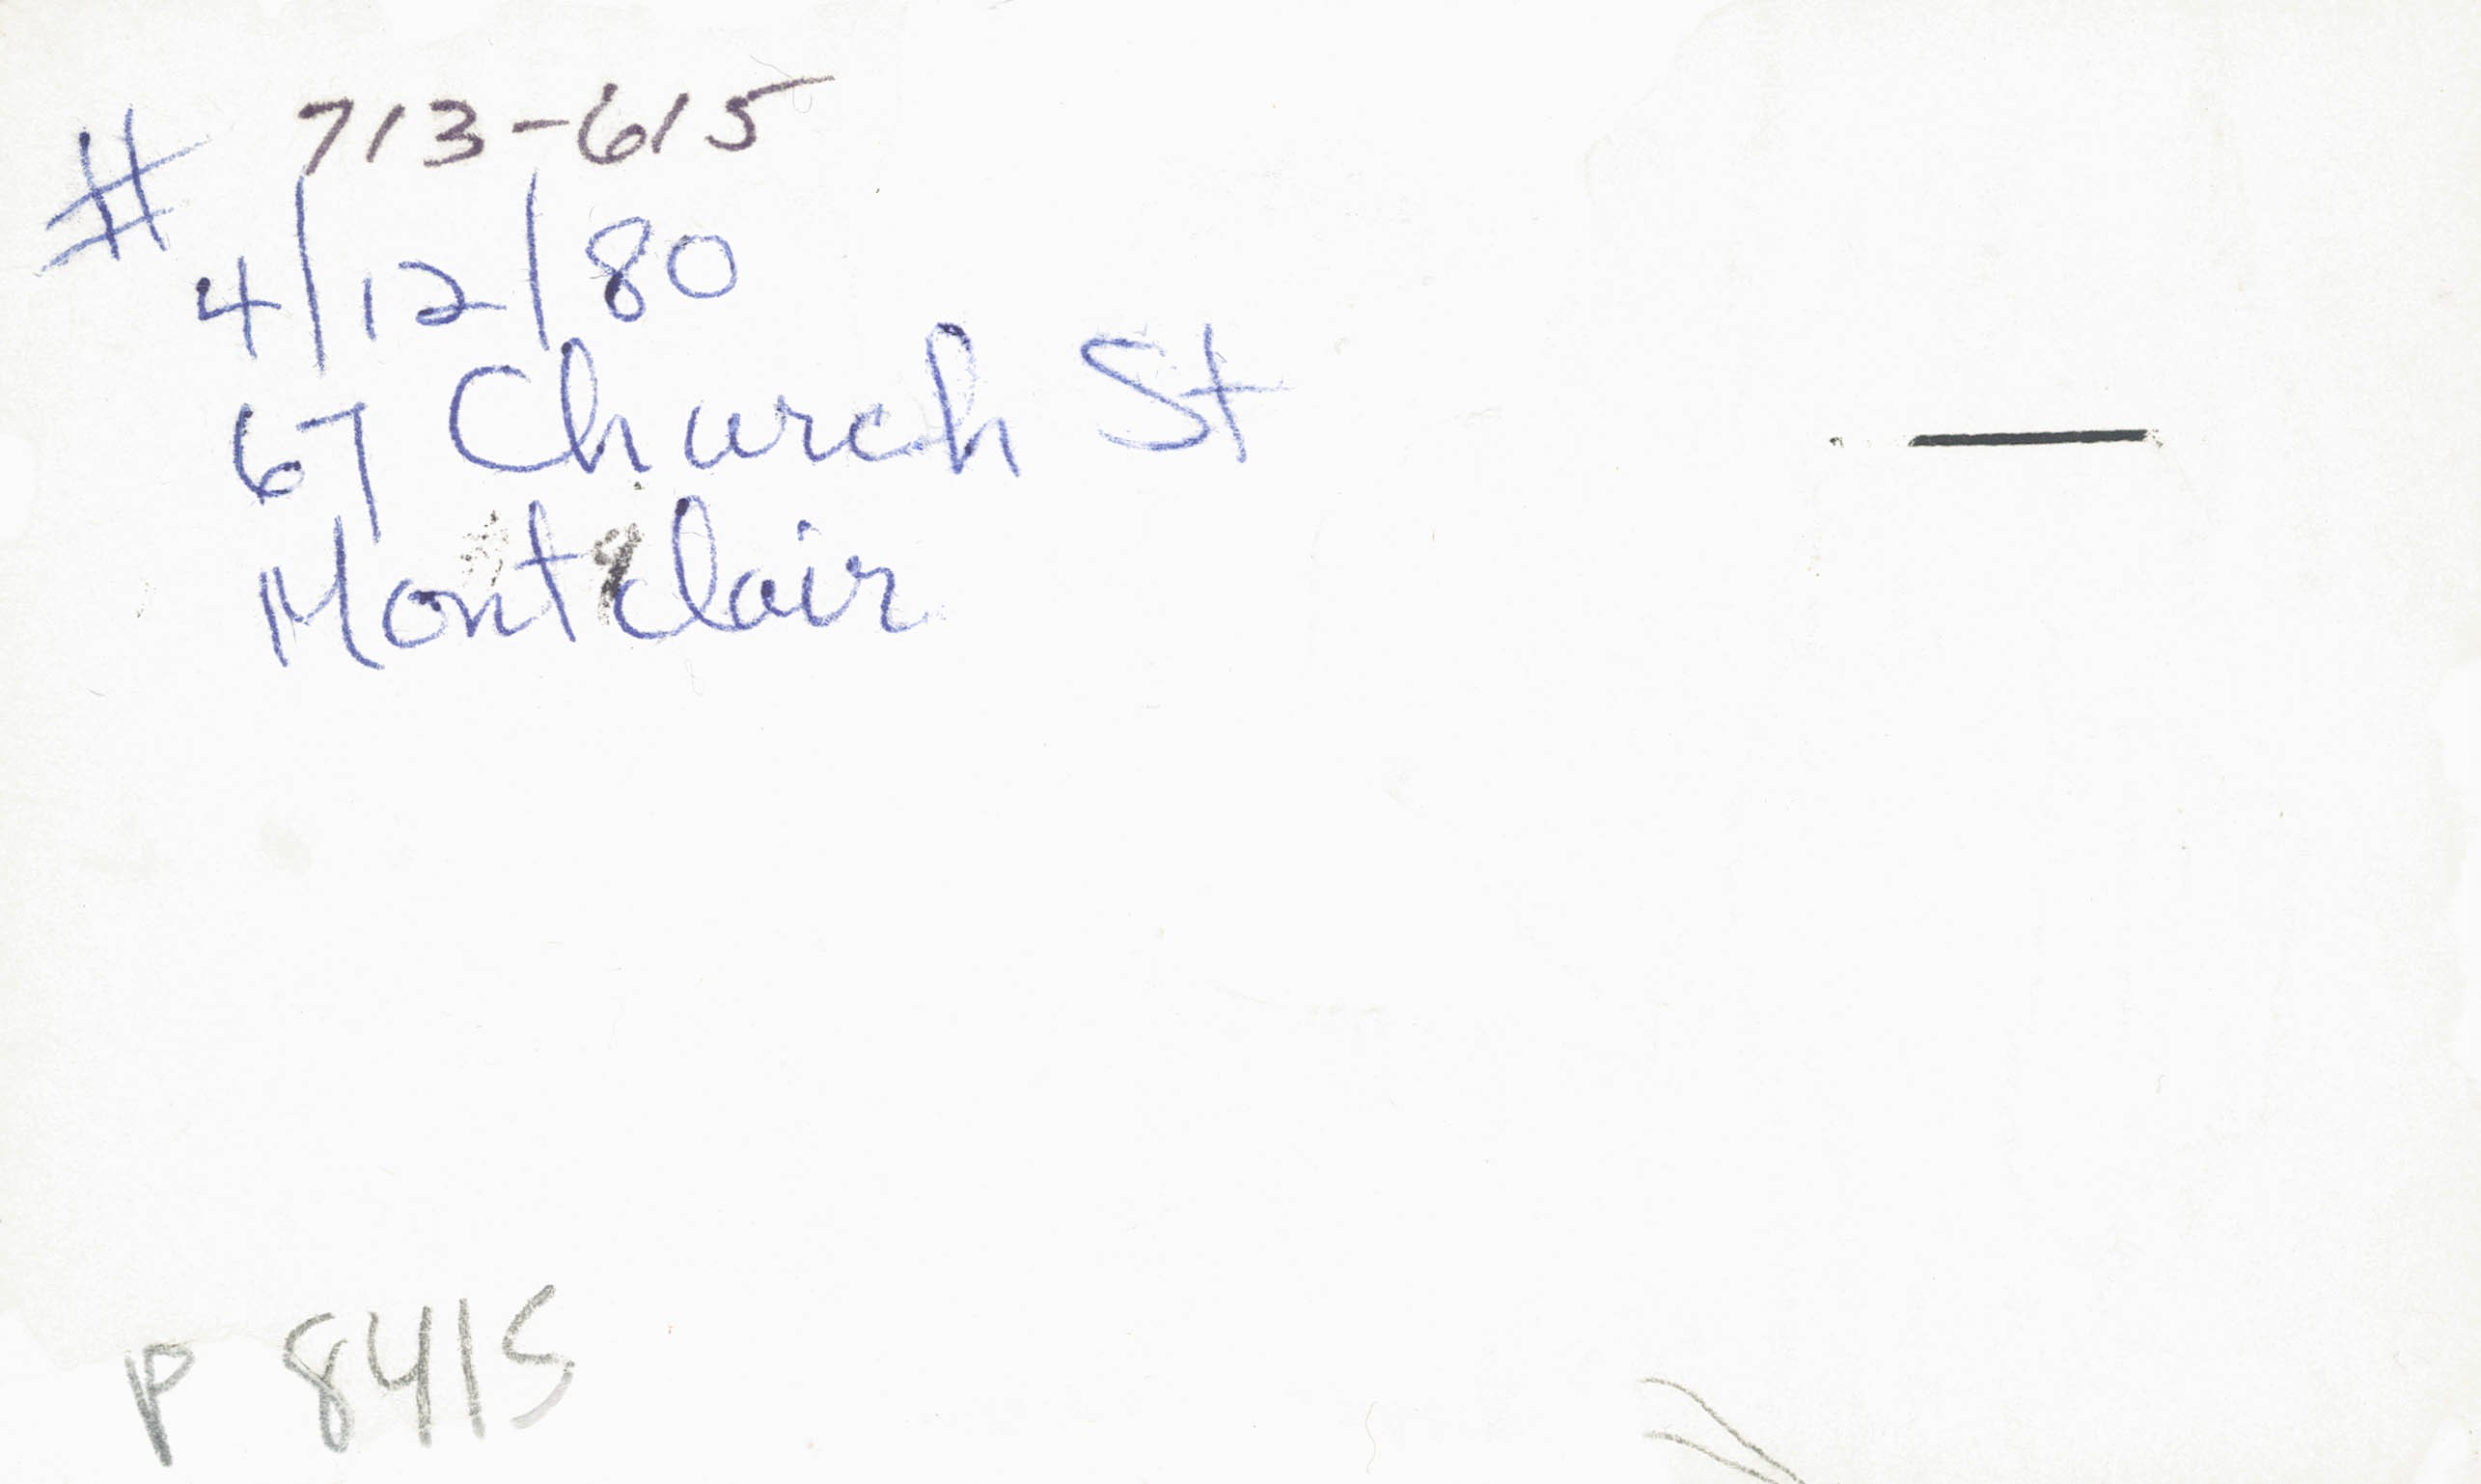 # 713-615
4/12/80
67 Church St
Montclair
P 8415